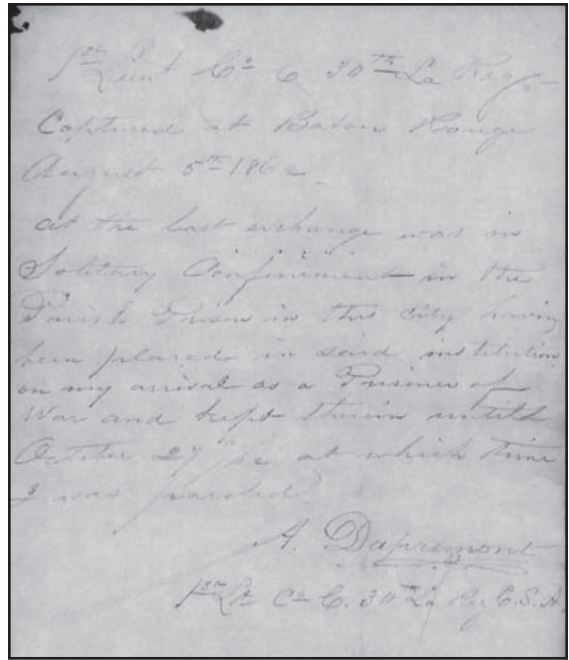 1st Lieut Co C 30th La Reg.
Captured at Baton Rouge
August 5th 1862
at the last exchange was in
Solitary Confinement in the
Parish Prison in this city having
been placed in said institution
on my arrival as a Prisoner of
War and kept therein untill
October 27th at which time
I was paroled
A. Dapremont
1st Lt Co C. 30th La Reg C.S.A.